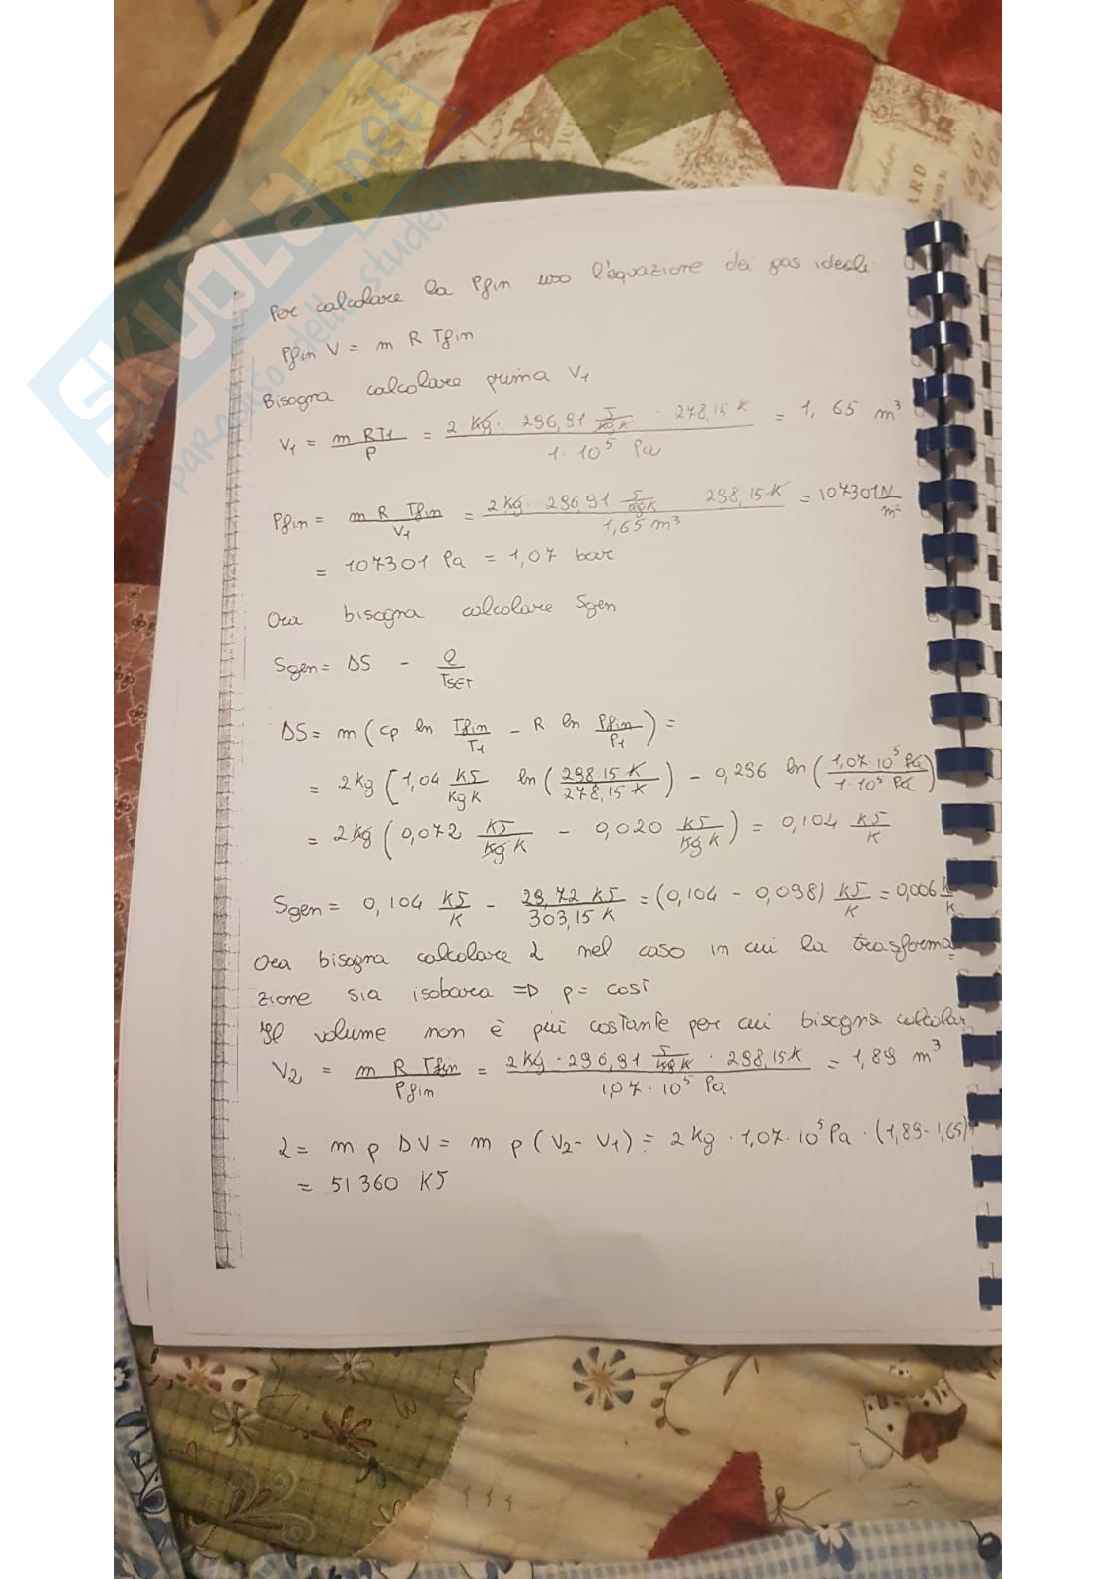 SKUOLA.net
il paradiso dello studente
Per calcolare la Pfin uso l'equazione dei gas ideali
Pfin V = m R Tfin
Bisogna calcolare prima V1
V1 = m R T1 / P = 2 Kg · 296,91 J/KgK · 278,15 K / 1·10^5 Pa = 1,65 m³
Pfin = m R Tfin / V1 = 2 Kg · 296,91 J/KgK 298,15 K / 1,65 m³ = 107301 N/m²
= 107301 Pa = 1,07 bar
Ora bisogna calcolare Sgen
Sgen = ΔS - Q / TSET
ΔS = m (cp ln Tfin/T1 - R ln Pfin/P1) =
= 2 Kg [1,04 KJ/KgK ln (298,15 K / 278,15 K) - 0,296 ln (1,07 10^5 Pa / 1·10^5 Pa)
= 2 Kg (0,072 KJ/KgK - 0,020 KJ/KgK) = 0,104 KJ/K
Sgen = 0,104 KJ/K - 29,72 KJ / 303,15 K = (0,104 - 0,098) KJ/K = 0,006 K/K
Ora bisogna calcolare L nel caso in cui la trasforma
zione sia isobara => p = cost
Il volume non è più costante per cui bisogna calcolar
V2 = m R Tfin / Pfin = 2 Kg · 296,91 J/KgK · 298,15 K / 1,07·10^5 Pa = 1,89 m³
L = m p ΔV = m p (V2 - V1) = 2 Kg · 1,07·10^5 Pa · (1,89 - 1,65)
= 51360 KJ